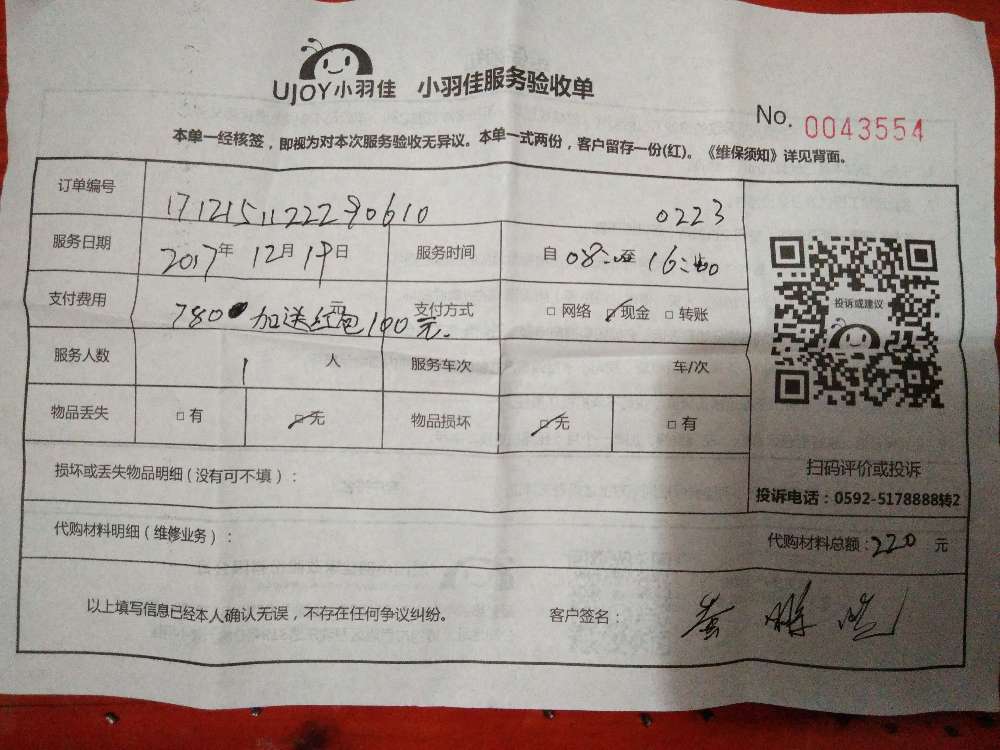 UJOY小羽佳 小羽佳服务验收单
No. 0043554
本单一经核签，即视为对本次服务验收无异议。本单一式两份，客户留存一份(红)。《维保须知》详见背面。
订单编号 1712151122290610 0223
服务日期 2017年12月19日 服务时间 自08:00至16:00
支付费用 780 元 加送红包100元. 支付方式 □网络 □现金 □转账
服务人数 1 人 服务车次 车/次
物品丢失 □有 □无 物品损坏 □无 □有
损坏或丢失物品明细（没有可不填）：
代购材料明细（维修业务）：
代购材料总额：220 元
以上填写信息已经本人确认无误，不存在任何争议纠纷。 客户签名：
投诉或建议
扫码评价或投诉
投诉电话：0592-5178888转2